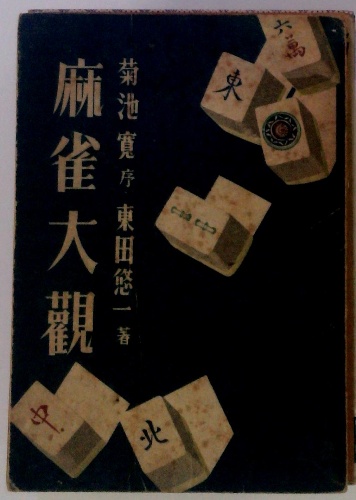 麻雀大觀
菊池寛序・東田悠一著
六萬
東
中
北